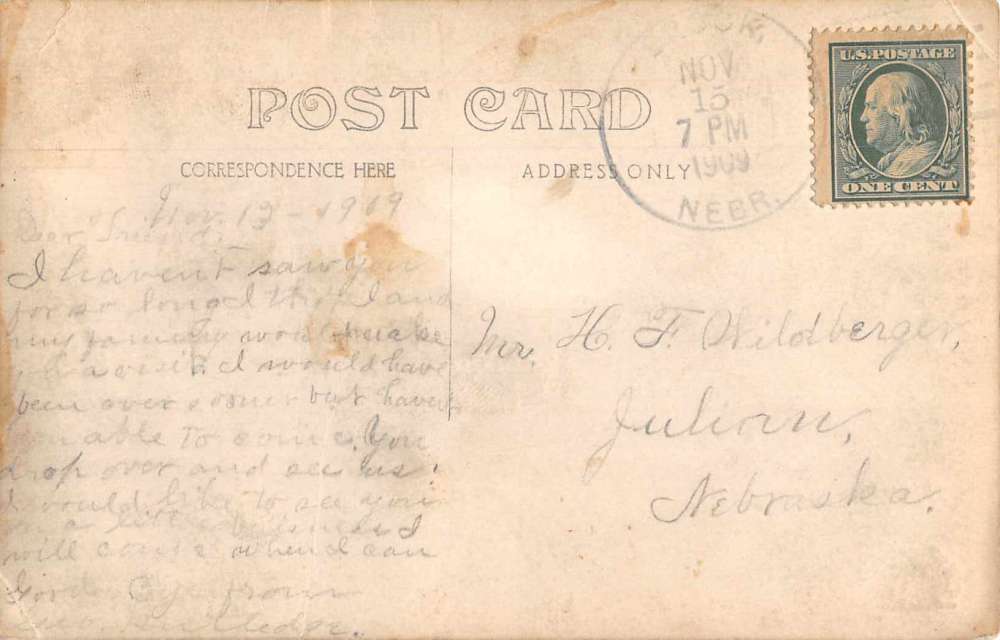 POST CARD
CORRESPONDENCE HERE
ADDRESS ONLY
NOV
15
7 PM
1909
NEBR.
U.S. POSTAGE
ONE CENT
Nov. 13 - 1919
Dear Friend,
I havent saw you
for so long I I and
my family would make
a visit I would have
been over sooner but havent
able to come. You
drop over and see us.
I would like to see you
on a little business I
will come when I can
from
Mr. H. F. Wildberger,
Julian,
Nebraska.